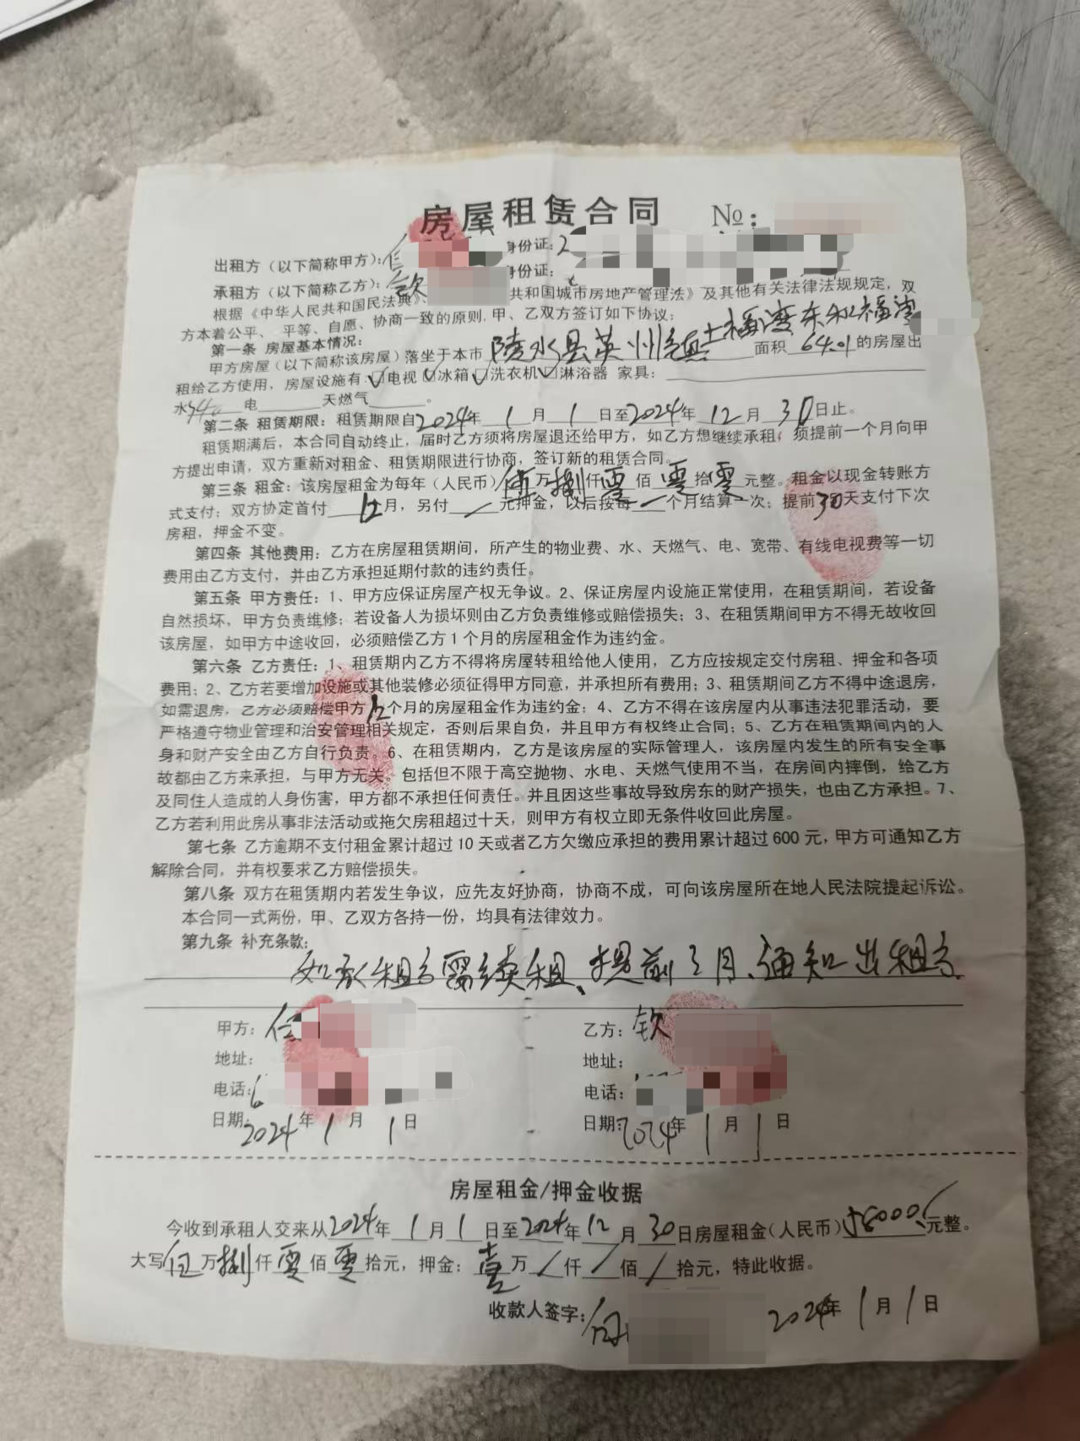 房屋租赁合同 №:
出租方（以下简称甲方）： 身份证:2
承租方（以下简称乙方）：钦 身份证:
根据《中华人民共和国民法典》 共和国城市房地产管理法》及其他有关法律法规规定，双
方本着公平、平等、自愿、协商一致的原则.甲、乙双方签订如下协议：
第一条 房屋基本情况：
甲方房屋（以下简称该房屋）落坐于本市 陵水县英州镇 福湾 福湾 面积 64.01 的房屋出
租给乙方使用，房屋设施有:☑电视☑冰箱☑洗衣机☑淋浴器 家具：
水 电 天燃气 。
第二条 租赁期限：租赁期限自2024年 1 月 1 日至2024年 12 月 30日止。
租赁期满后，本合同自动终止，届时乙方须将房屋退还给甲方，如乙方想继续承租，须提前一个月向甲
方提出申请，双方重新对租金、租赁期限进行协商，签订新的租赁合同。
第三条 租金：该房屋租金为每年（人民币）伍万捌仟零佰零拾零元整。租金以现金转账方
式支付；双方协定首付 月，另付 元押金，以后按每 个月结算一次；提前30天支付下次
房租，押金不变。
第四条 其他费用：乙方在房屋租赁期间，所产生的物业费、水、天燃气、电、宽带、有线电视费等一切
费用由乙方支付，并由乙方承担延期付款的违约责任。
第五条 甲方责任：1、甲方应保证房屋产权无争议。2、保证房屋内设施正常使用，在租赁期间，若设备
自然损坏，甲方负责维修；若设备人为损坏则由乙方负责维修或赔偿损失；3、在租赁期间甲方不得无故收回
该房屋，如甲方中途收回，必须赔偿乙方1个月的房屋租金作为违约金。
第六条 乙方责任：1、租赁期内乙方不得将房屋转租给他人使用，乙方应按规定交付房租、押金和各项
费用；2、乙方若要增加设施或其他装修必须征得甲方同意，并承担所有费用；3、租赁期间乙方不得中途退房，
如需退房，乙方必须赔偿甲方 个月的房屋租金作为违约金；4、乙方不得在该房屋内从事违法犯罪活动，要
严格遵守物业管理和治安管理相关规定，否则后果自负，并且甲方有权终止合同；5、乙方在租赁期间内的人
身和财产安全由乙方自行负责。6、在租赁期内，乙方是该房屋的实际管理人，该房屋内发生的所有安全事
故都由乙方来承担，与甲方无关。包括但不限于高空抛物、水电、天燃气使用不当，在房间内摔倒，给乙方
及同住人造成的人身伤害，甲方都不承担任何责任。并且因这些事故导致房东的财产损失，也由乙方承担。7、
乙方若利用此房从事非法活动或拖欠房租超过十天，则甲方有权立即无条件收回此房屋。
第七条 乙方逾期不支付租金累计超过10天或者乙方欠缴应承担的费用累计超过600元，甲方可通知乙方
解除合同，并有权要求乙方赔偿损失。
第八条 双方在租赁期内若发生争议，应先友好协商，协商不成，可向该房屋所在地人民法院提起诉讼。
本合同一式两份，甲、乙双方各持一份，均具有法律效力。
第九条 补充条款：
如承租方需续租、提前3月、通知出租方
甲方：任 乙方：钦
地址： 地址：
电话：6 电话：
日期：2024年 1 月 1 日 日期：2024年 1 月 1 日
房屋租金/押金收据
今收到承租人交来从2024年 1 月 1 日至2024年 12 月 30日房屋租金（人民币）58000元整。
大写伍万捌仟零佰零拾元，押金：壹万/仟/佰/拾元，特此收据。
收款人签字： 2024年 1月 1日